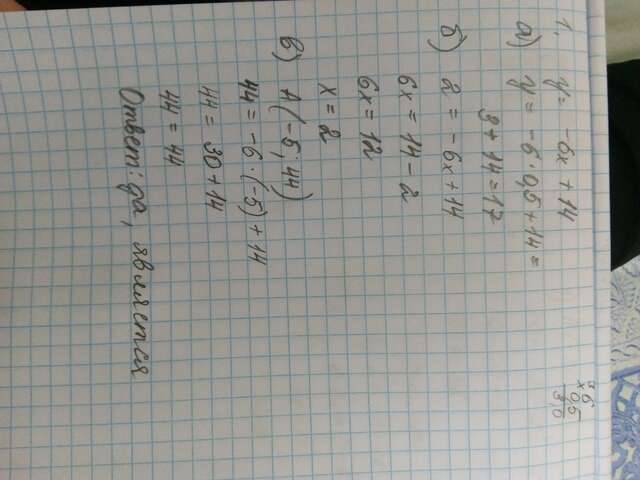 1. y = -6x + 14
а) y = -6 · 0,5 + 14 =
3 + 14 = 17
б) 2 = -6x + 14
6x = 14 - 2
6x = 12
x = 2
в) A(-5; 44)
44 = -6 · (-5) + 14
44 = 30 + 14
44 = 44
Ответ: да, является
× 6
0,5
3,0